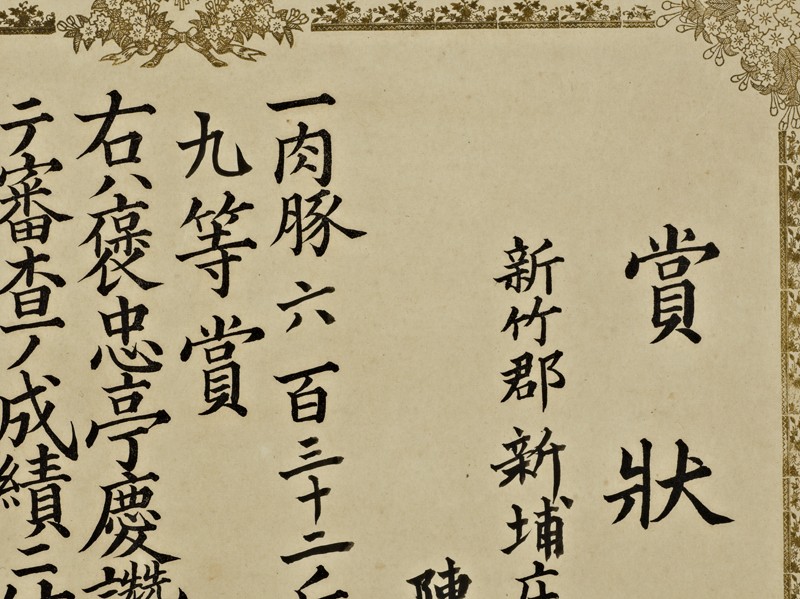 賞狀
新竹郡新埔庄
陳
一肉豚六百三十二斤
九等賞
右ハ褒忠亭慶讚
テ審査ノ成績ニ